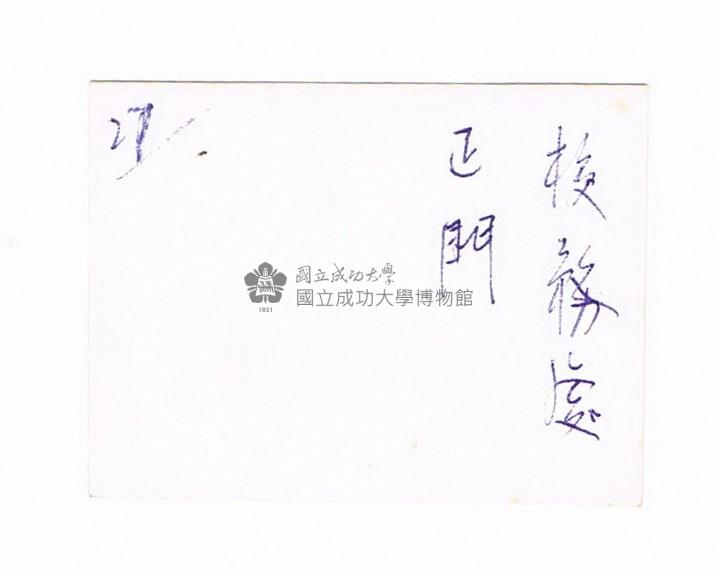 校務處
正門
27
國立成功大學
國立成功大學博物館
1931